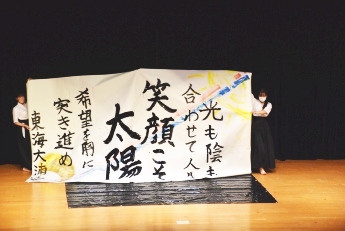 光も陰も
合わせて人生
笑顔こそ
太陽
希望を胸に
突き進め
東海大浦